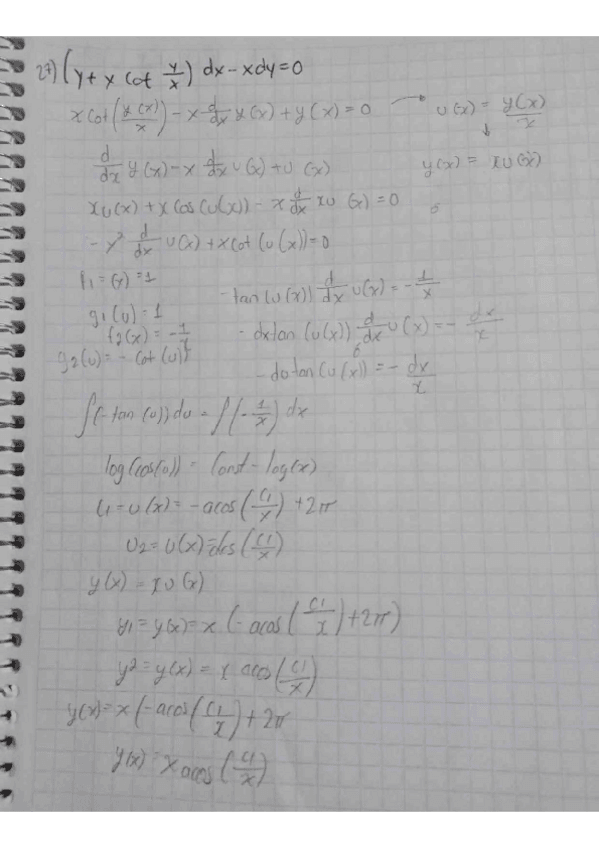 27) (y + x cot y/x) dx - x dy = 0
x cot(y(x)/x) - x d/dx y(x) + y(x) = 0 → u(x) = y(x)/x
↓
d/dx y(x) - x d/dx u(x) + u(x)
y(x) = x u(x)
x u(x) + x cos(u(x)) - x d/dx x u(x) = 0
- x² d/dx u(x) + x cot(u(x)) = 0
f1 = (x) = 1
- tan(u(x)) d/dx u(x) = - 1/x
g1(u) = 1
f2(x) = - 1/x
- dx tan(u(x)) d/dx u(x) = - dx/x
g2(u) = - cot(u)
- du tan(u(x)) = - dx/x
∫(- tan(u)) du = ∫(- 1/x) dx
log(cos(u)) = Const - log(x)
u1 = u(x) = - acos(C1/x) + 2π
u2 = u(x) = acos(C1/x)
y(x) = x u(x)
y1 = y(x) = x(- acos(C1/x) + 2π)
y2 = y(x) = x acos(C1/x)
y(x) = x(- acos(C1/x) + 2π
y(x) = x acos(C1/x)